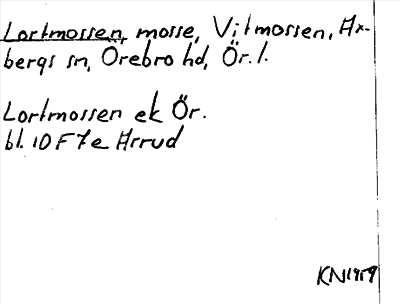 Lortmossen, mosse, Vitmossen, Ax-
bergs sn, Örebro hd, Ör. l.
Lortmossen ek Ör.
bl. 10 F 7 e Arrud
KN 1959